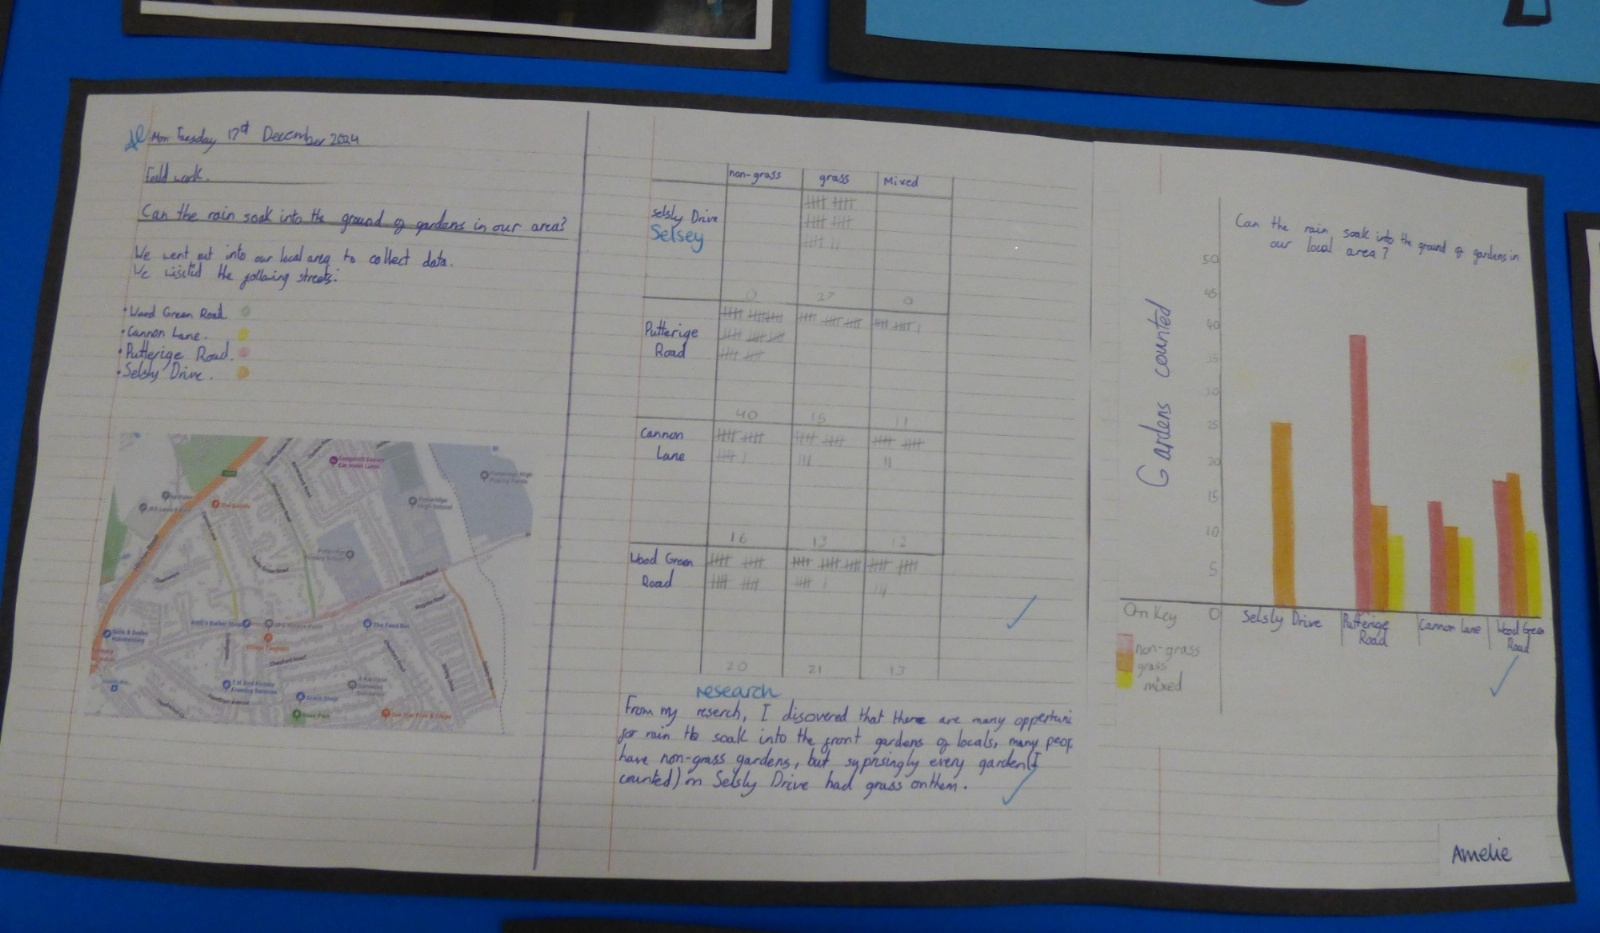 Mon Tuesday 17th December 2024
Feild work.
Can the rain soak into the ground of gardens in our area?
We went out into our local area to collect data.
We visited the following streets:
• Wood Green Road
• Cannon Lane.
• Putterige Road.
• Selsly Drive.
non-grass grass Mixed
selsly Drive
Selsey
0 27 0
Putterige
Road
40 15 11
Cannon
Lane
16 13 12
Wood Green
Road
20 21 13
research
From my reserch, I discovered that there are many opportuni
for rain to soak into the front gardens of locals, many peop
have non-grass gardens, but suprisingly every garden (I
counted) on Selsly Drive had grass on them.
Can the rain soak into the ground of gardens in
our local area?
Gardens counted
50
45
40
35
30
25
20
15
10
5
0
Key
non-grass
grass
mixed
Selsly Drive
Putterige
Road
Cannon Lane
Wood Green
Road
Amelie